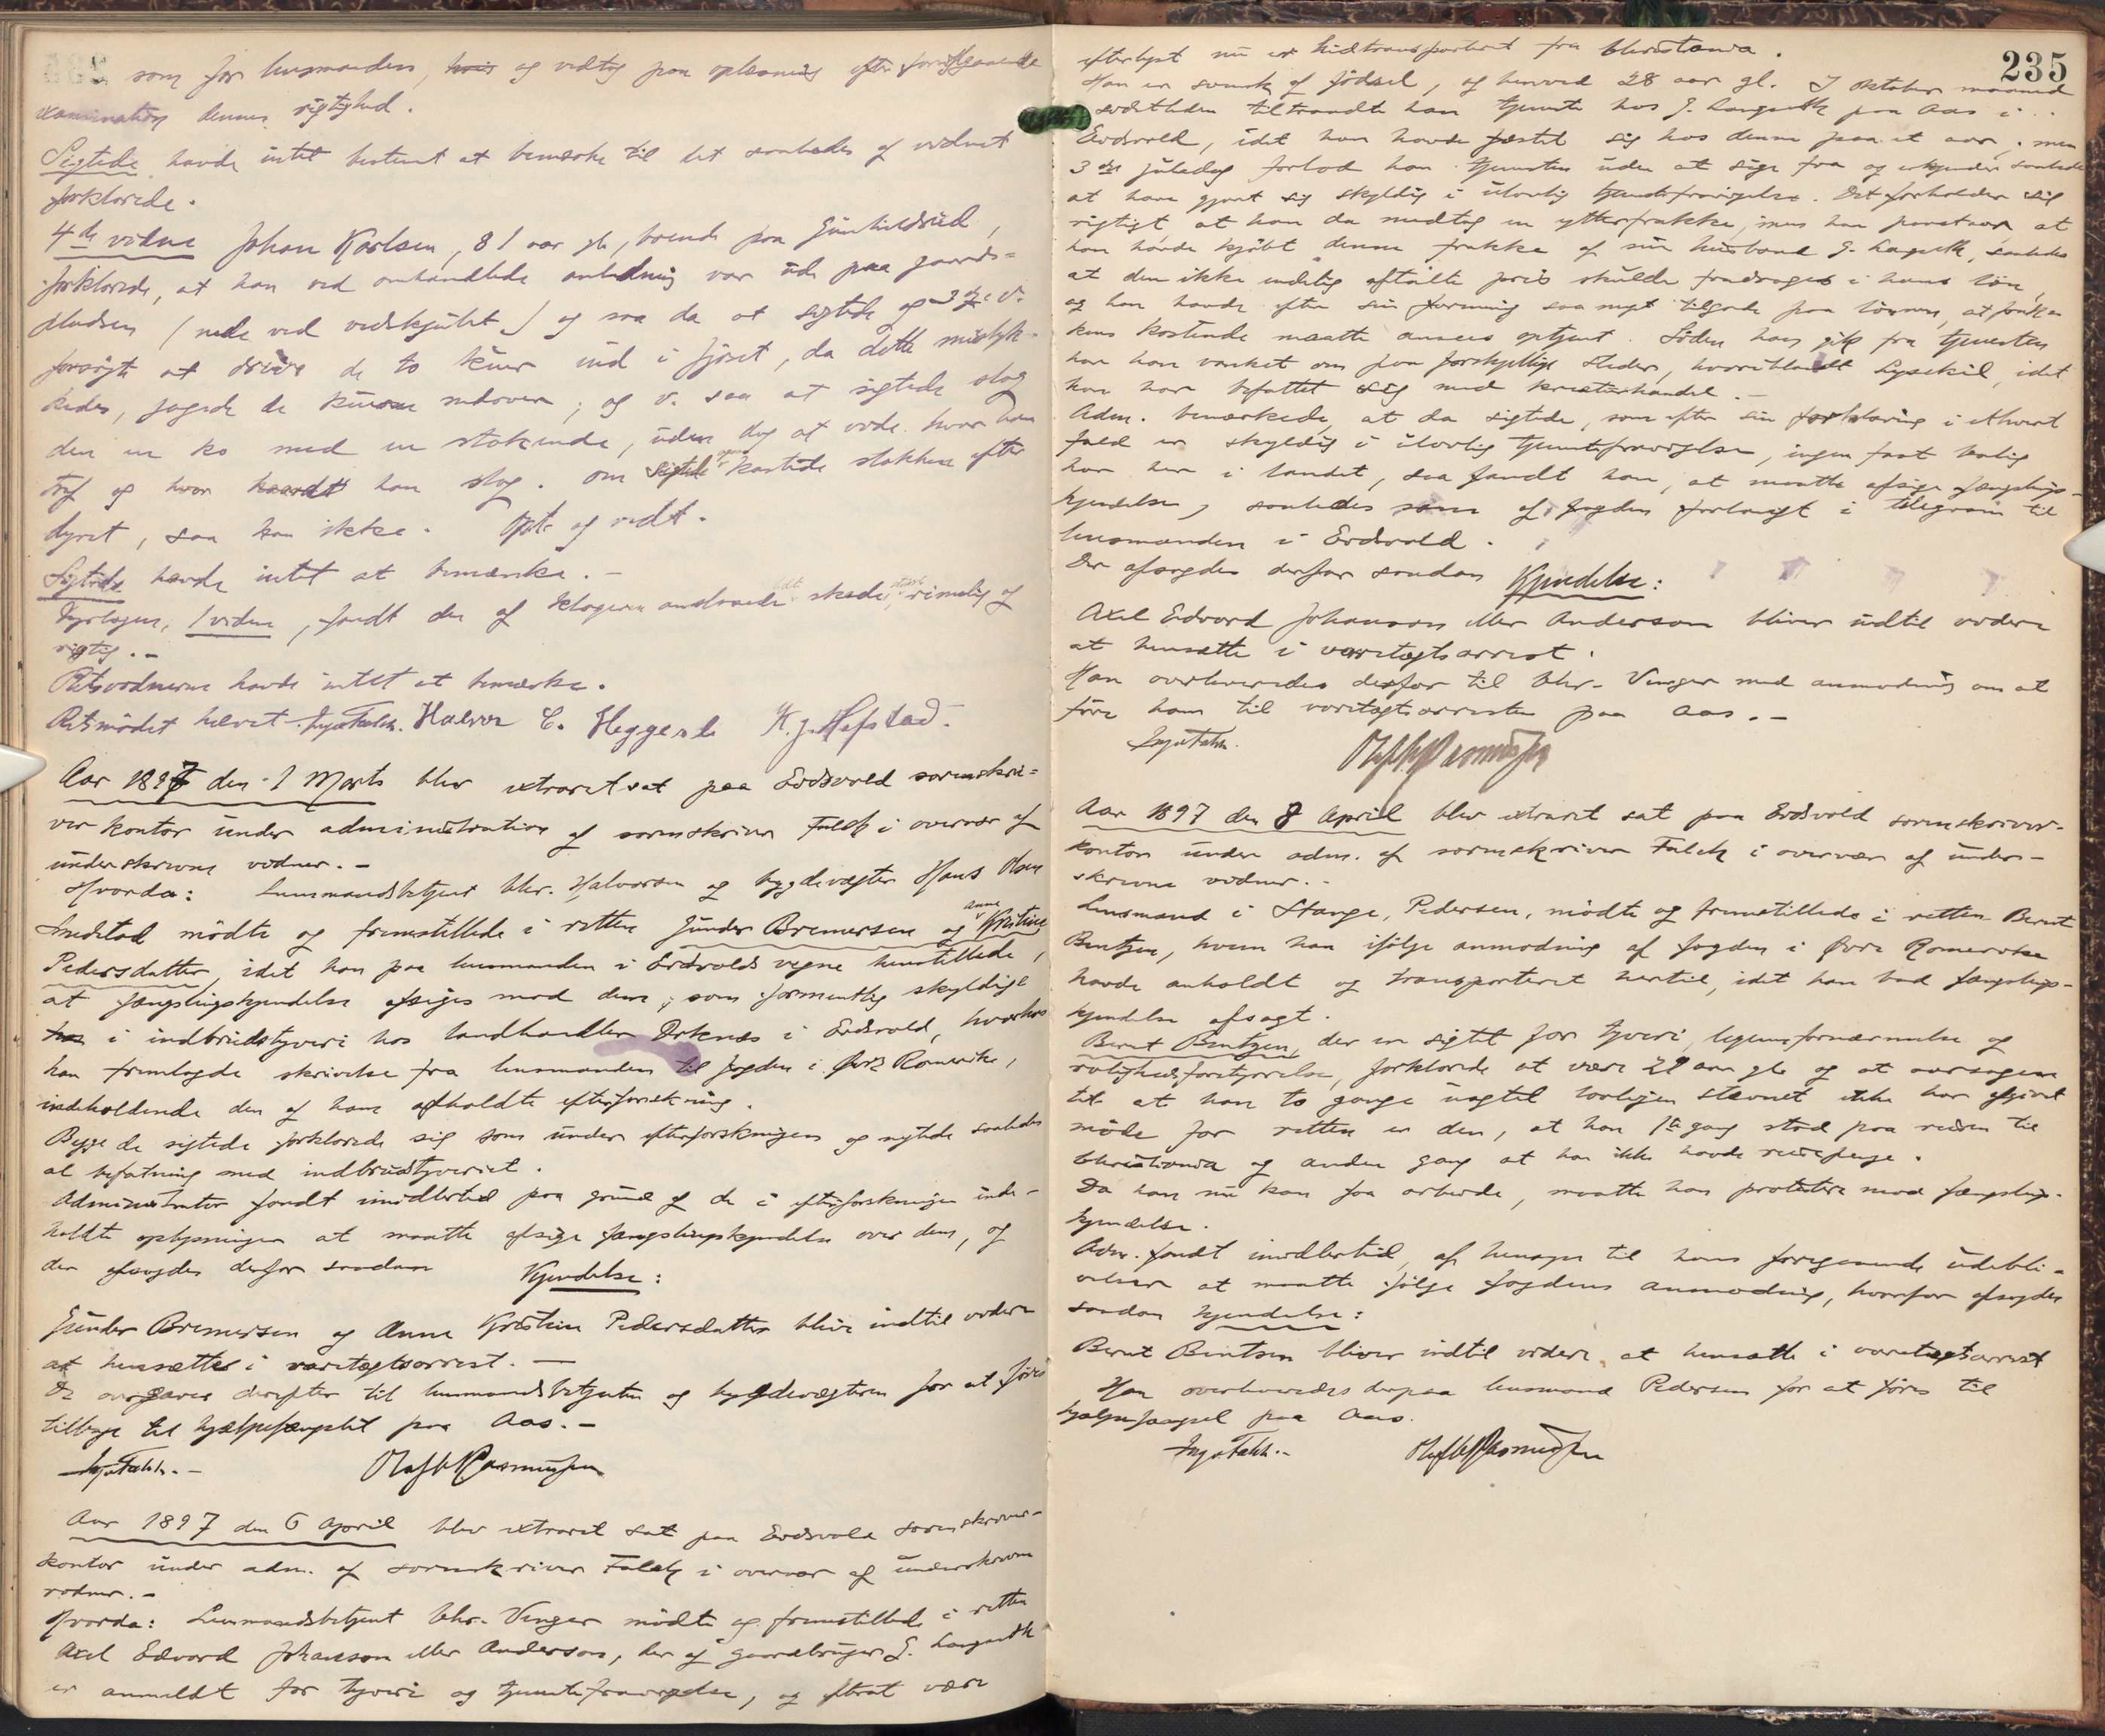 som for lensmanden, og vedtog paa oplæsning efter foregaaende
examination dennes rigtighed.
Sigtede havde intet bestemt at bemærke til det saaledes af vidnet
forklarede.
4de vidne Johan Karlsen, 81 aar gl., boende paa Gunhildsrud,
forklarede, at han ved omhandlede anledning var ude paa gaards-
pladsen (nede ved vedskjulet) og saa da at sigtede og 3die v.
forsøgte at drive de to kuer ind i fjøset, da dette mislyk-
kedes, jagede de kuerne nedover; og v. saa at sigtede slog
den en ko med en stokende, uden dog at vide hvor han
traf og hvor haardt han slog. Om sigtede kastede stokken efter
dyret, saa han ikke. Oplt. og vedt.
Sigtede havde intet at bemærke. -
Dyrlægen, 1 vidne, fandt den af klageren anslaaede skade rimelig og
rigtig. -
Retsvidnerne havde intet at bemærke.
Retsmødet hævet. Halvor C. Heggen K. J. Hofstad.
Aar 1897 den 1 Marts blev extraret sat paa Eidsvold sorenskri-
ver kontor under administration af sorenskriver Falck i overvær af
underskrevne vidner. -
Hvorda: Lensmandsbetjent Chr. Halvorsen og bygdevægter Hans Olsen
mødte og fremstillede i retten Gunder Bremersen og Anne Kristine
Pedersdatter, idet han paa lensmanden i Eidsvolds vegne henstillede,
at fængslingskjendelse afsiges mod dem, som formentlig skyldige
i indbrudstyveri hos landhandler Drknæs i Eidsvold, hvorhos
han fremlagde skrivelse fra lensmanden til fogden i Øvre Romerike,
indeholdende den af ham afholdte efterforskning.
Begge de sigtede forklarede sig som under efterforskningen og negtede saaledes
al befatning med indbrudstyveriet.
Administrator fandt imidlertid paa grund af de i efterforskningen inde-
holdte oplysninger at maatte afsige fængslingskjendelse over dem, og
der afsagdes derfor saadan Kjendelse:
Gunder Bremersen og Anne Kristine Pedersdatter blive indtil videre
at hensætte i varetægtsarrest. -
De overgaves derefter til lensmandsbetjenten og bygdevægteren for at føres
tilbage til hjælpefængslet paa Aas. -
Olaf Rasmussen
Aar 1897 den 6 April blev extraret sat paa Eidsvold sorenskriver-
kontor under adm. af sorenskriver Falck i overvær af underskrevne
vidner. -
Hvorda: Lensmandsbetjent Chr. Vinger mødte og fremstillede i retten
Axel Edvard Johanson eller Anderson, der af gaardbruger J. Languth
er anmeldt for tyveri og tjenestefravigelse, og efterat være
235
efterlyst nu er hidtransporteret fra Christiania.
Han er svensk af fødsel, og henved 28 aar gl. I oktober maaned
sidstleden tiltraadte han tjeneste hos J. Languth paa Aas i
Eidsvold, idet han havde fæstet sig hos denne paa et aar, men
3die juledag forlod han tjenesten uden at sige fra og erkjender saaledes
at have gjort sig skyldig i ulovlig tjenestefravigelse. Det forholder sig
rigtigt at han da medtog en ytterfrakke, men han paastaar at
han havde kjøbt denne frakke af sin husbond J. Languth, saaledes
at den ikke endelig aftalte pris skulde fradrages i hans løn,
og han havde efter sin formening saa meget tilgode paa lønnen, at frakkens
kostende maatte ansees optjent. Siden han gik fra tjenesten
har han vanket om paa forskjellige steder, hvoriblandt Lysekil, idet
han har befattet sig med kreaturhandel. -
Adm. bemærkede, at da sigtede, som efter sin forklaring i ethvert
fald er skyldig i ulovlig tjenestefravigelse, ingen fast bolig
har her i landet, saa fandt han, at maatte afsige fængslings-
kjendelse, saaledes som af fogden forlangt i telegram til
lensmanden i Eidsvold.
Der afsagdes derfor saadan Kjendelse:
Axel Edvard Johanson eller Anderson bliver indtil videre
at hensætte i varetægtsarrest.
Han overleveredes derfor til Chr. Vinger med anmodning om at
føre ham til varetægtsarresten paa Aas. -
Olaf Rasmussen
Aar 1897 den 8 April blev extraret sat paa Eidsvold sorenskriver-
kontor under adm. af sorenskriver Falck i overvær af under-
skrevne vidner. -
Lensmand i Stange, Pedersen, mødte og fremstillede i retten Bernt
Bentzen, hvem han ifølge anmodning af fogden i Øvre Romerike
havde anholdt og transporteret hertil, idet han bad fængslings-
kjendelse afsagt.
Bernt Bentzen, der er sigtet for tyveri, legemsfornærmelse og
rolighedsforstyrrelse, forklarede at være 29 aar gl. og at aarsagen
til at han to gange uagtet lovligen stævnet ikke har afgivet
møde for retten er den, at han 1ste gang stod paa reisen til
Christiania og anden gang at han ikke havde reisepenge.
Da han nu kan faa arbeide, maatte han protestere mod fængslings-
kjendelse.
Adm. fandt imidlertid, af hensyn til hans foregaaende udebli-
velser at maatte følge fogdens anmodning, hvorfor afsagdes
saadan kjendelse:
Bernt Bentsen bliver indtil videre at hensætte i varetægtsarrest
Han overleveredes derpaa lensmand Pedersen for at føres til
hjælpefængsel paa Aas.
Olaf Rasmussen